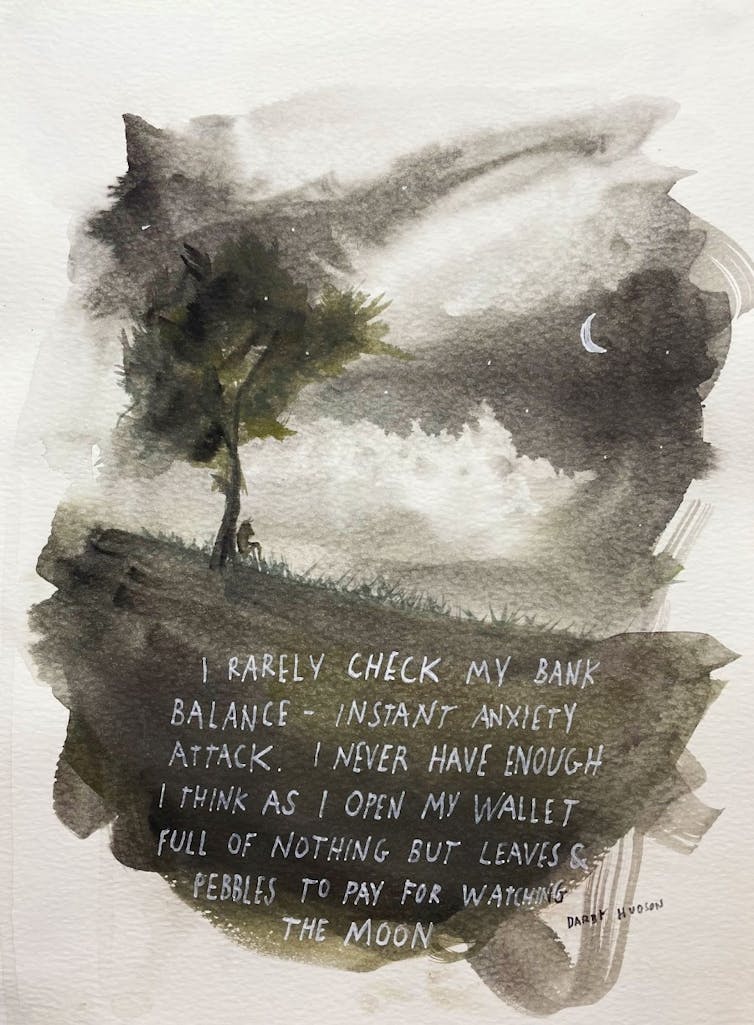 I RARELY CHECK MY BANK
BALANCE - INSTANT ANXIETY
ATTACK. I NEVER HAVE ENOUGH
I THINK AS I OPEN MY WALLET
FULL OF NOTHING BUT LEAVES &
PEBBLES TO PAY FOR WATCHING
THE MOON
DARBY HUDSON